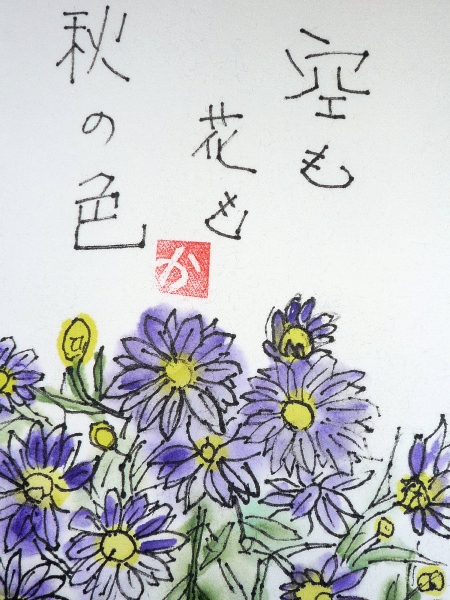 空も
花も
秋の色
か